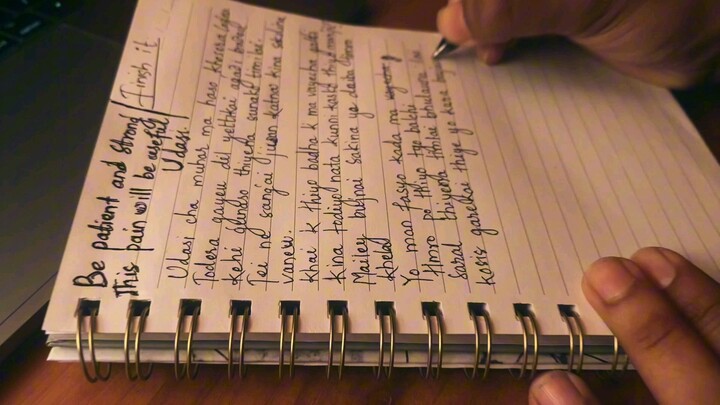 Be patient and strong
This pain will be useful / Finish it
Udasi
Udasi cha muhar ma haso khusera
Todera gayeu dil yettikai agadi
Kehi gunaso thiyena sunako timi lai
Tei ne sangai jiwan katna kina sakina
vaneu.
Khai k thiyo badha k ma vayecha galti
kina tadiyo nata kunni kasle thiyo
Mailey bujhnai sakina yo daba
khelad
Yo man fasyo kada ma
timro po thiyo tyo bakhi
saral thiyena timlai bhulauna lai
kosis garekai thiye yo kura